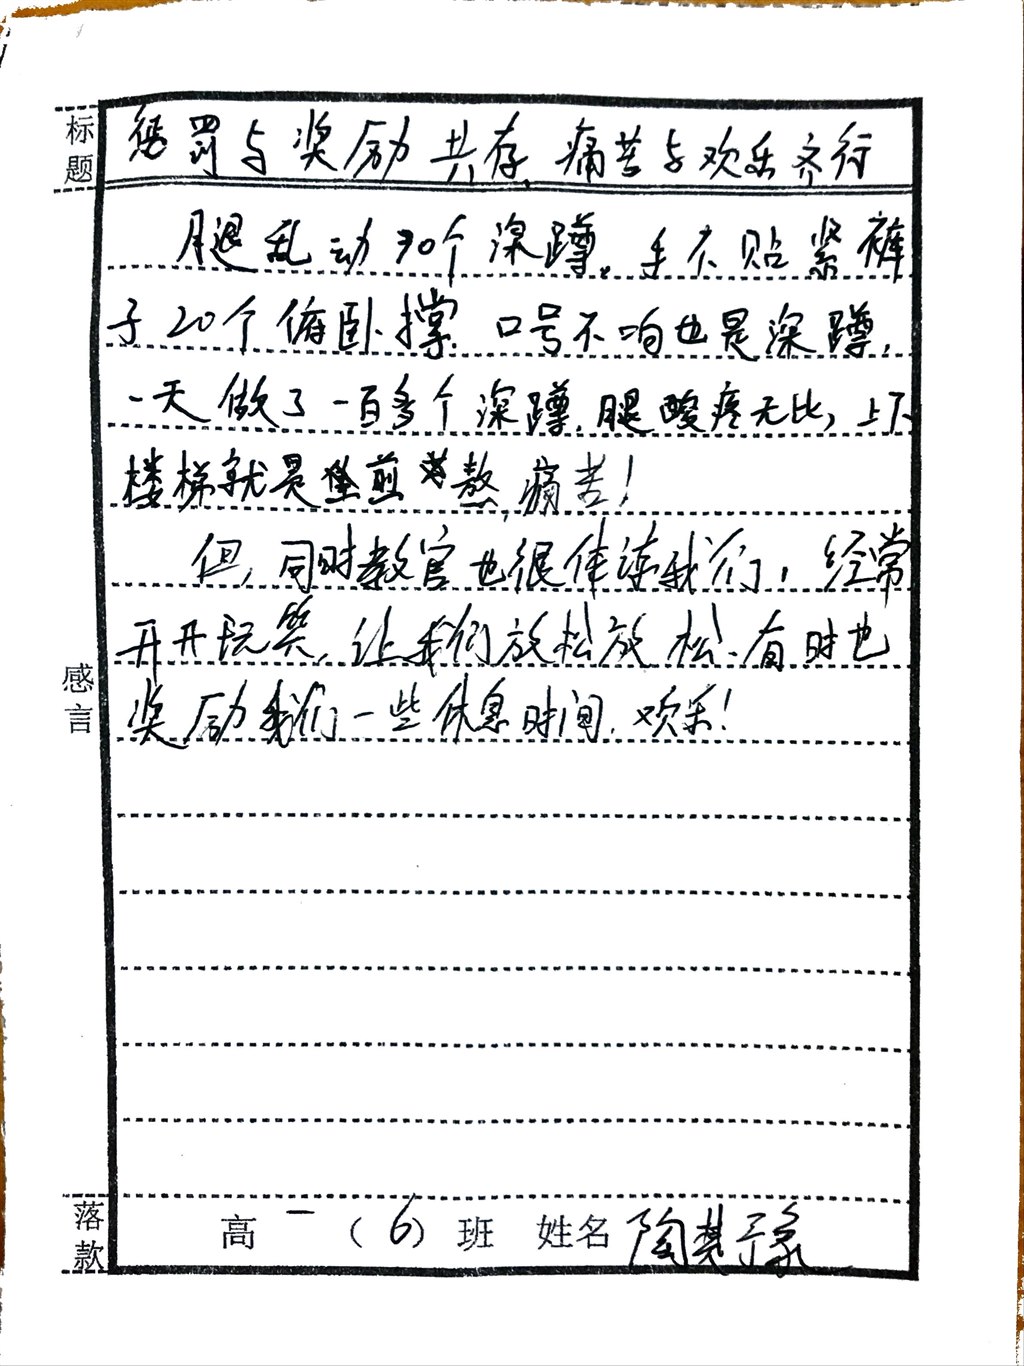 标题 惩罚与奖励共存,痛苦与欢乐齐行
腿乱动30个深蹲。手不贴紧裤
子20个俯卧撑。口号不响也是深蹲,
一天做了一百多个深蹲,腿酸疼无比,上下
楼梯就是煎熬,痛苦!
但,同时教官也很体谅我们,经常
开开玩笑,让我们放松放松.有时也
奖励我们一些休息时间.欢乐!
感言
落款 高一(6)班 姓名 陶梦豫